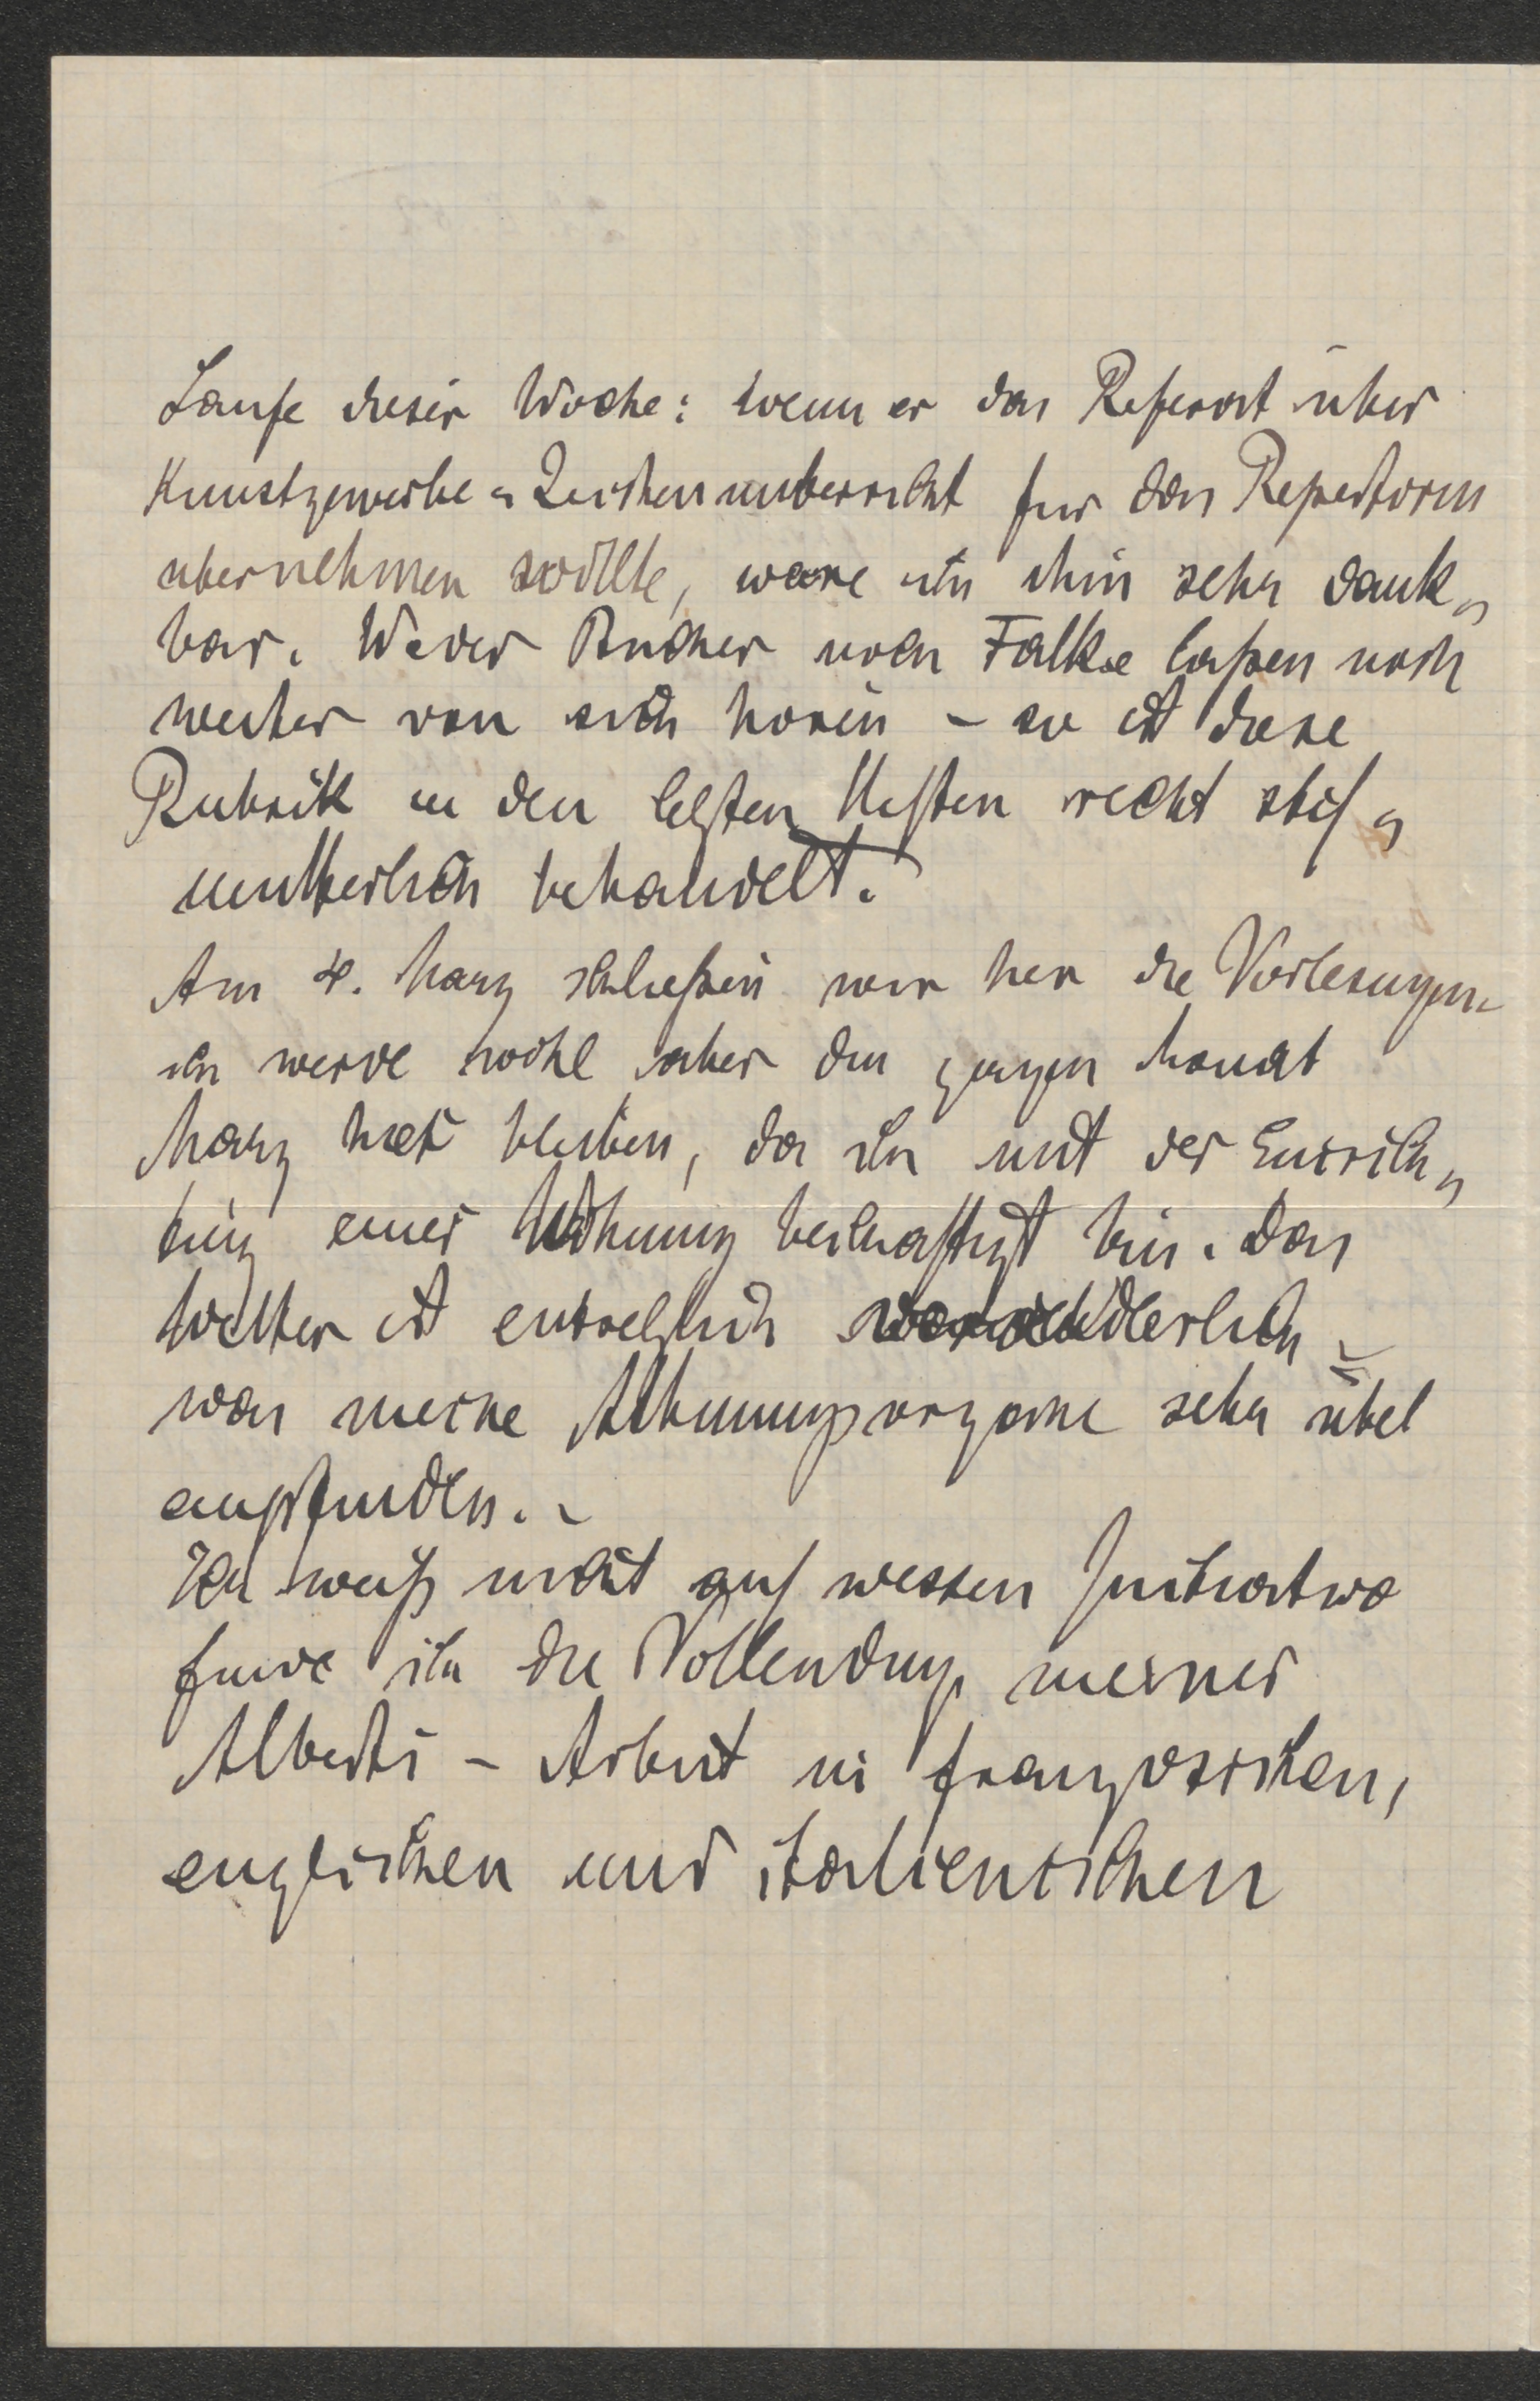 Laufe dieser Woche: wenn er das Referat über
Kunstgewerbe u Zeichenunterricht fur das Repertorm
ubernehmen wollte, ware ich ihm sehr dank„
bar. Weder Bucher noch Falke laßen noch
weiter von sich horen – so ist diese
Rubrik in den letzten Heften recht stief„
mutterlich behandelt.
Am 4. Marz schließen wir hier die Vorlesungen
ich werde wohl aber den ganzen Monat
Marz hier bleiben, da ich mit der Einrich„
tung einer Wohnung beschaftigt bin. Das
Wetter ist entsetzlich veranderlich –
was meine Athmungsorgane sehr übel
empfinden. –
Ich weiß nicht auf wessen Initiative
finde ich die Vollendung meiner
Alberti – Arbeit in franzosischen,
englischen und italienischen